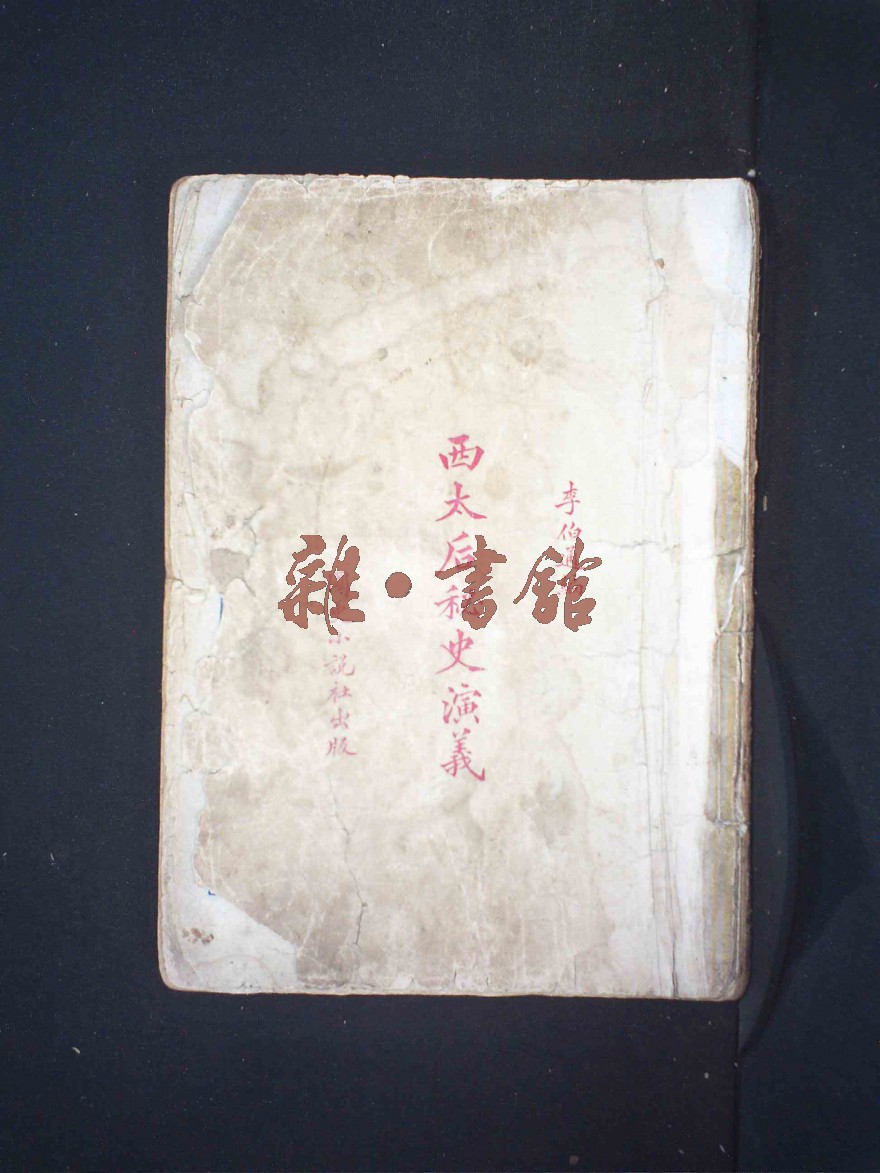 李伯通
西太后秘史演義
小説社出版
雜·書館